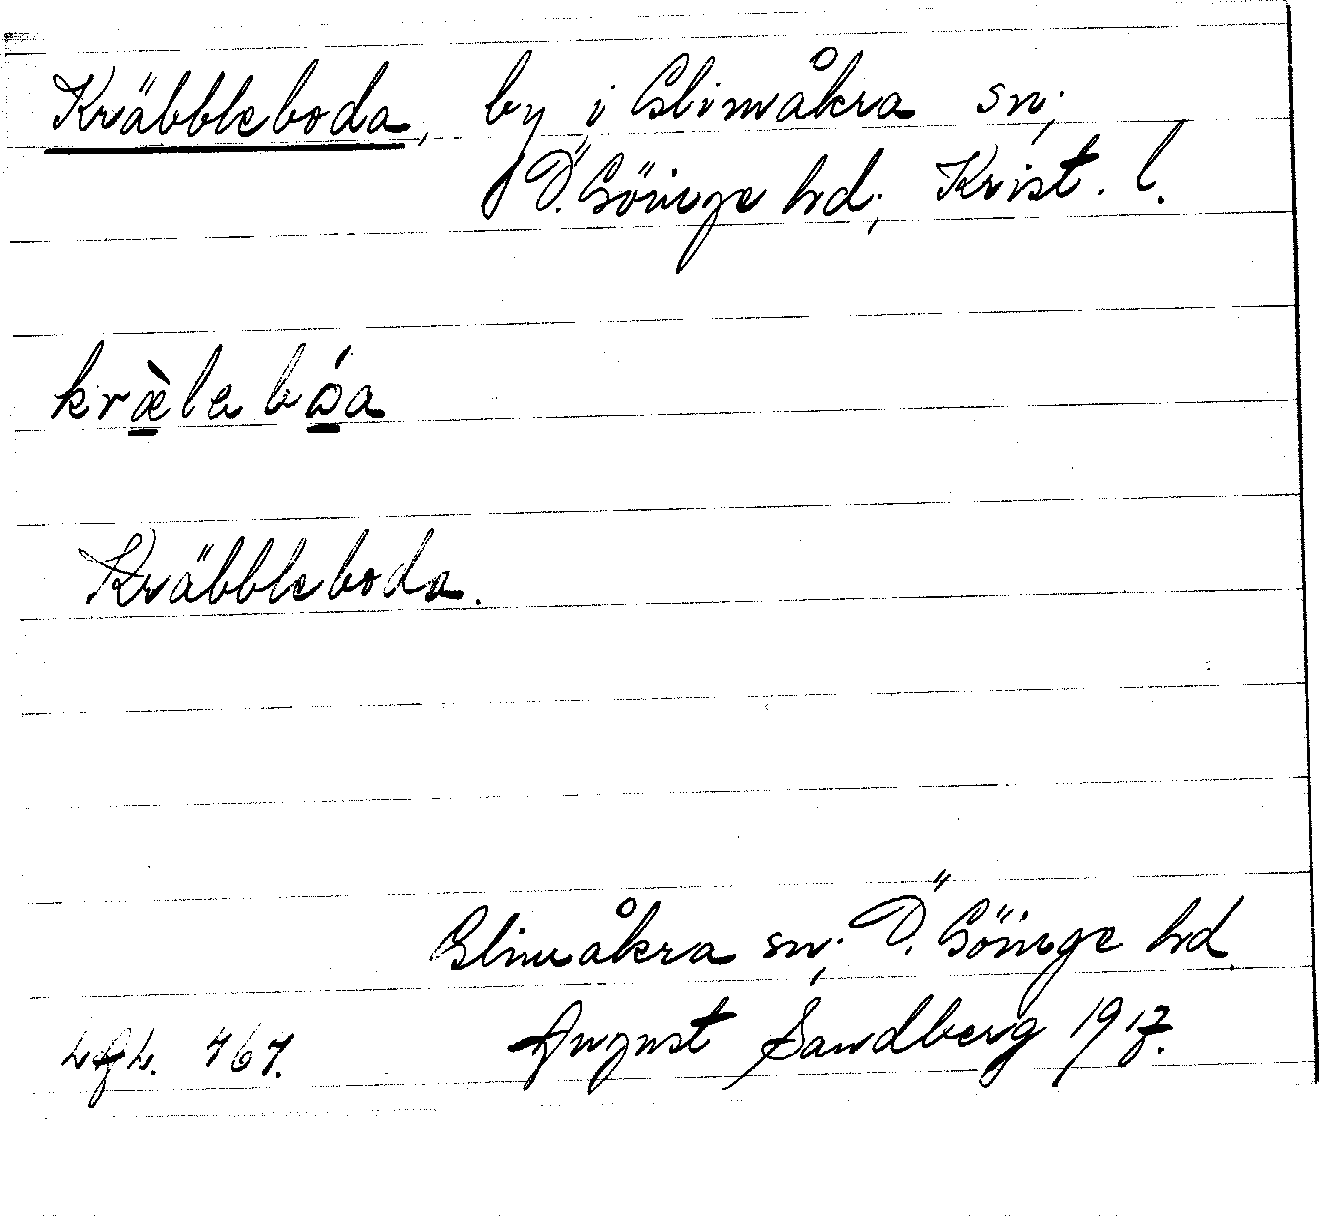 Kräbbleboda, by i Glimåkra sn;
Ö. Göinge hd; Krist. l.
kræ̀le bóa
Kräbbleboda.
Glimåkra sn; Ö. Göinge hd
August Sandberg 1917.